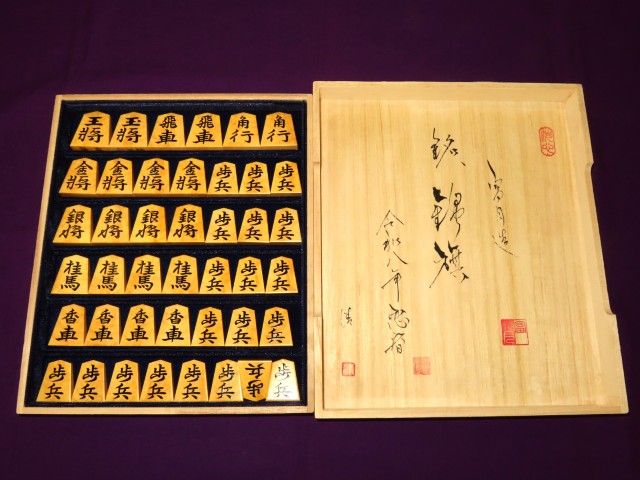 王将 玉将 飛車 飛車 角行 角行
金将 金将 金将 金将 歩兵 歩兵 歩兵
銀将 銀将 銀将 銀将 歩兵 歩兵 歩兵
桂馬 桂馬 桂馬 桂馬 歩兵 歩兵 歩兵
香車 香車 香車 香車 歩兵 歩兵 歩兵
歩兵 歩兵 歩兵 歩兵 歩兵 歩兵 歩兵 歩兵
富月造
銘、錦旗
令和八年